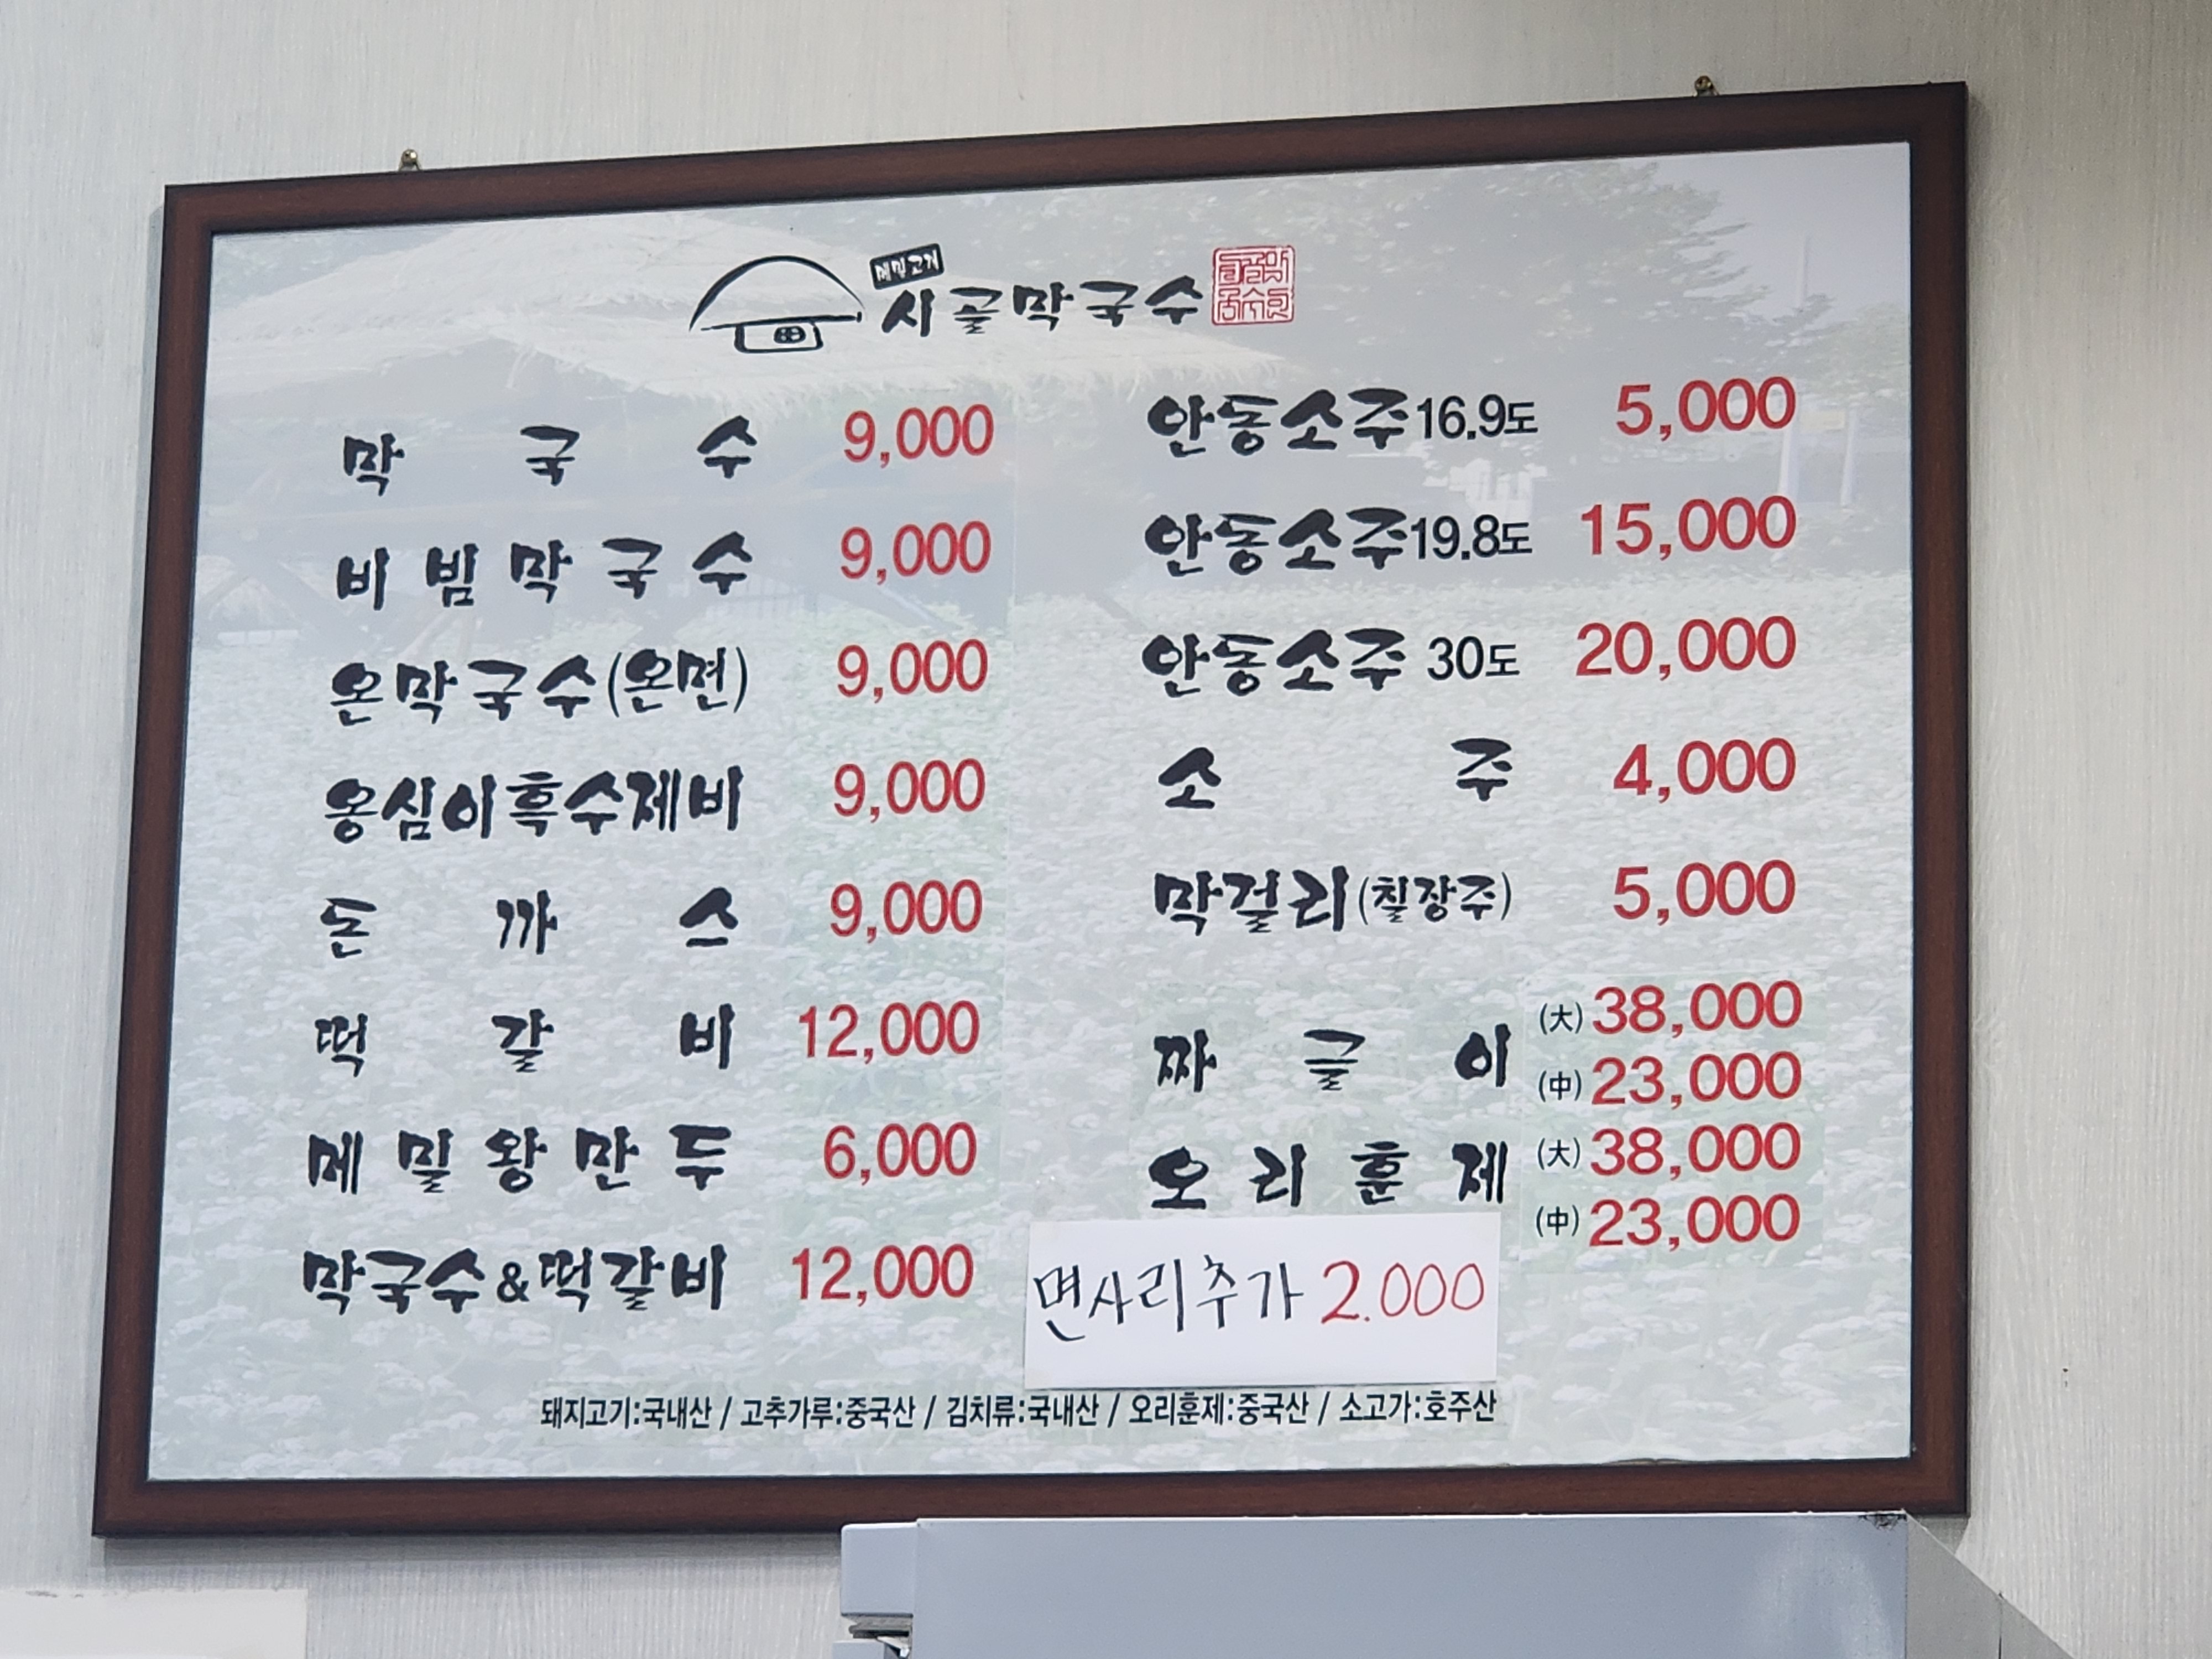 메밀고지
시골막국수
막국수 9,000
비빔막국수 9,000
온막국수(온면) 9,000
옹심이흑수제비 9,000
돈까스 9,000
떡갈비 12,000
메밀왕만두 6,000
막국수&떡갈비 12,000
안동소주16.9도 5,000
안동소주19.8도 15,000
안동소주 30도 20,000
소주 4,000
막걸리(칠장주) 5,000
짜글이 (大) 38,000
(中) 23,000
오리훈제 (大) 38,000
(中) 23,000
면사리추가 2.000
돼지고기:국내산 / 고추가루:중국산 / 김치류:국내산 / 오리훈제:중국산 / 소고가:호주산